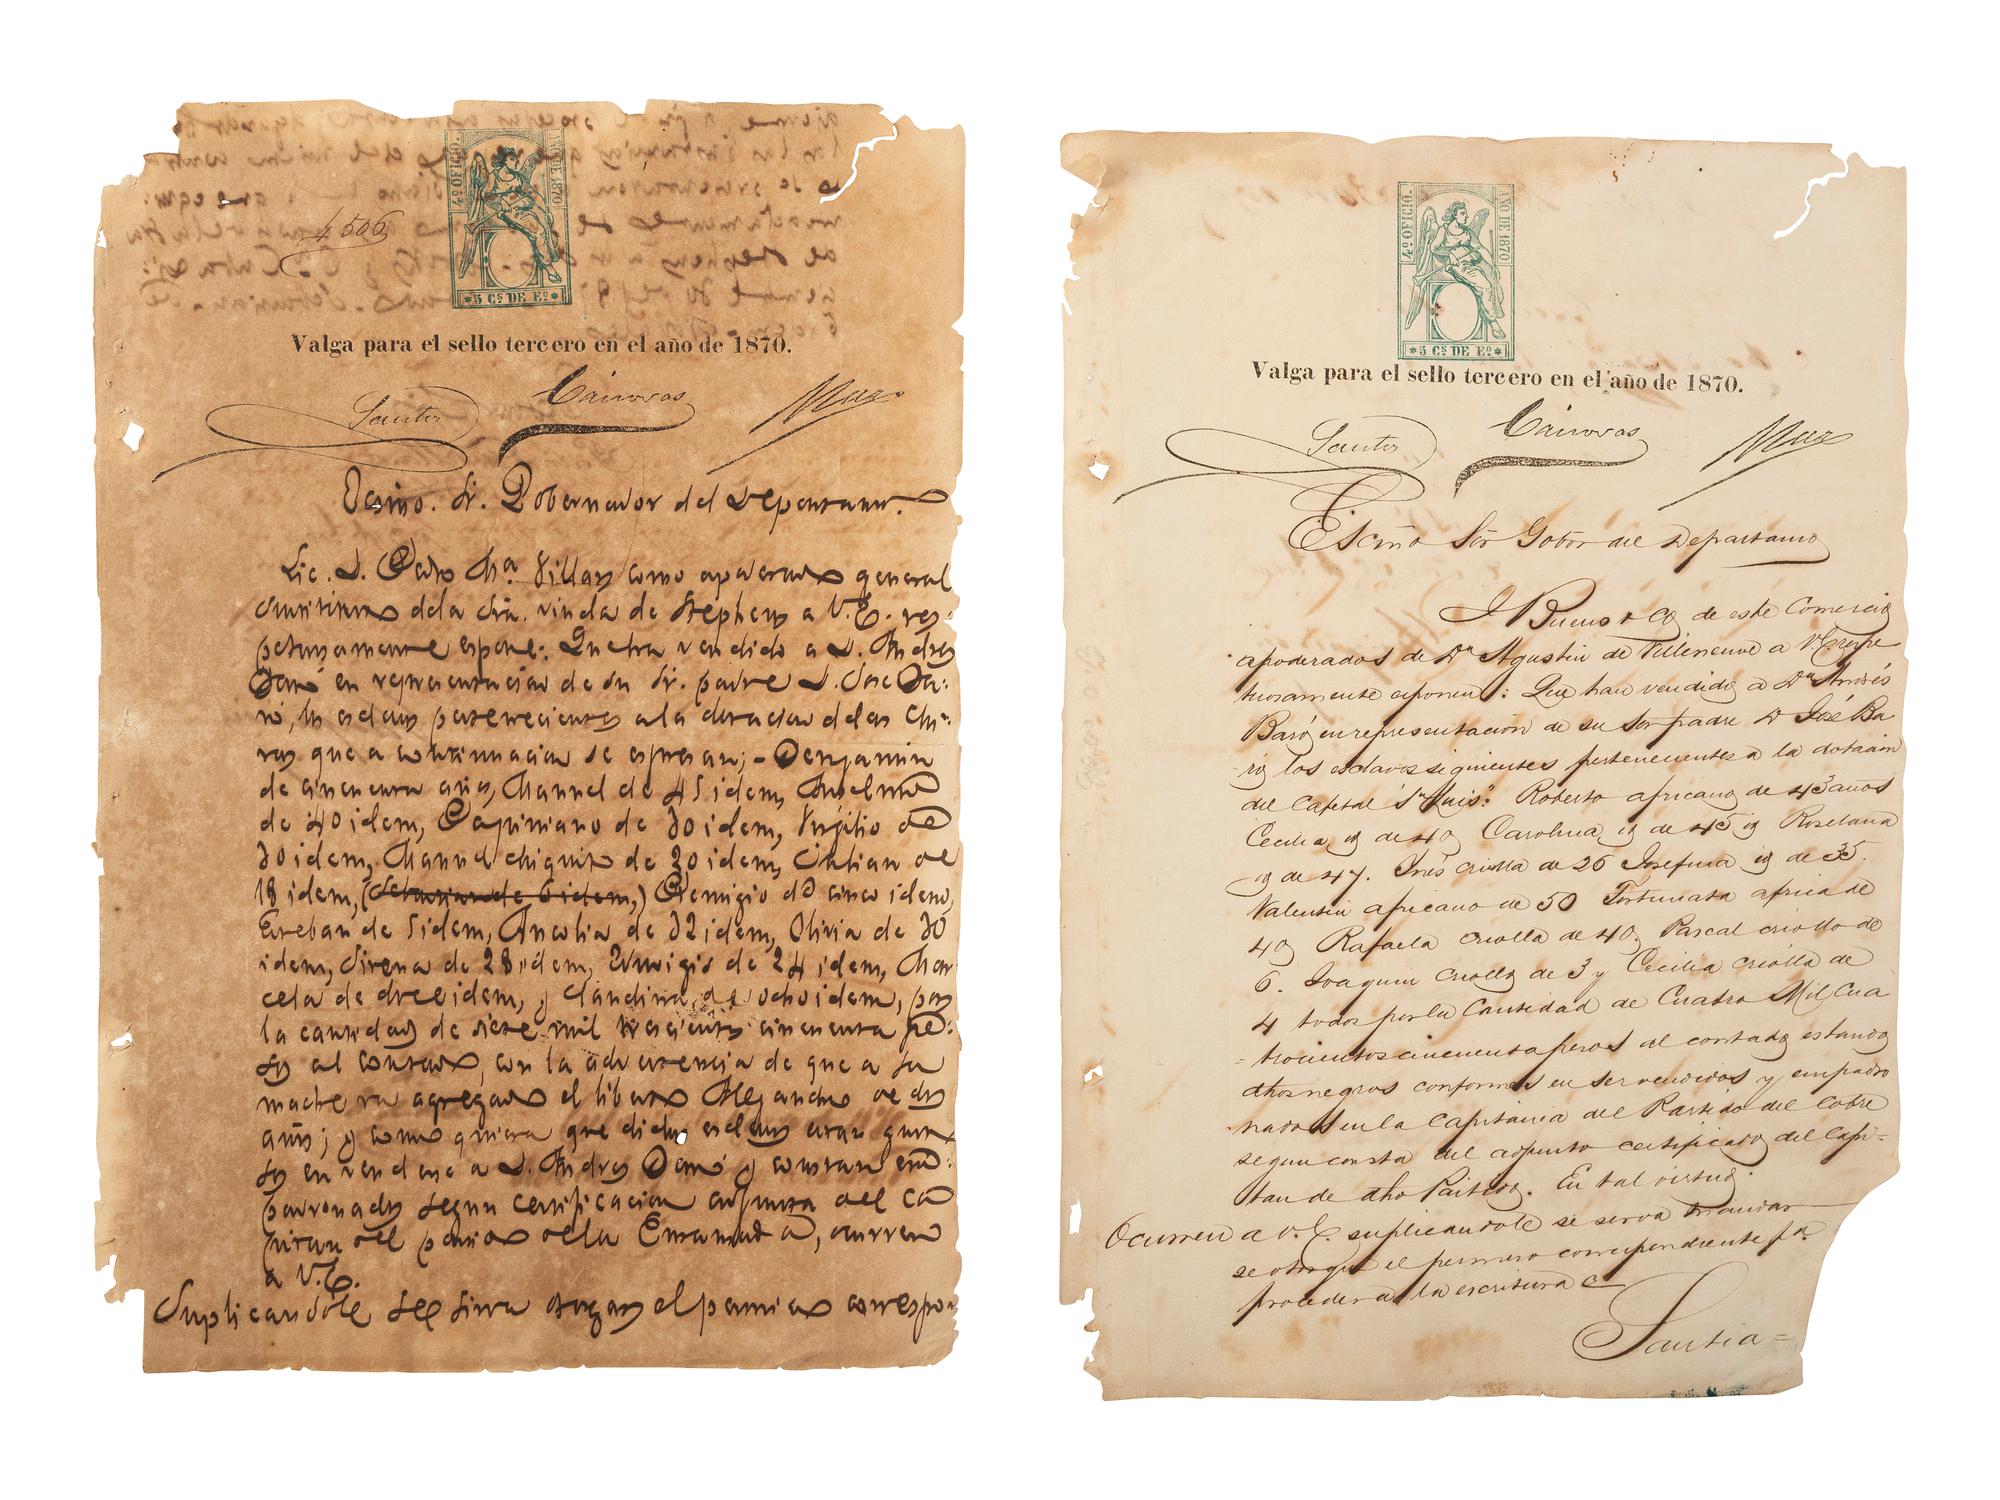 4506
4º OFICIO.
AÑO DE 1870
*5 Cs DE Eº*
Valga para el sello tercero en el año de 1870.
Santos Cánovas Ruiz
Exsmo. Sr. Gobernador del Departamto.
Lic. D. Pedro Ma. Villar como apoderado general
sustituto de la Sra. viuda de Stephens a V.E. res-
petuosamente espone: Que ha vendido a D. Andres
Baró en representacion de su Sr. padre D. Jose Ba-
ró, los esclavos pertenecientes a la dotacion de las
que a continuacion se espresan; - Benjamin
de cincuenta años, Manuel de 45 idem, Anselmo
de 40 idem, de 30 idem, Virgilio de
30 idem, Manuel chiquito de 20 idem, Julian de
18 idem, (Sebastian de 6 idem,) Remigio de cinco idem,
Esteban de 5 idem, de 32 idem, Olivia de 30
idem, Sirena de 28 idem, de 24 idem, Mar-
cela de doce idem, y Claudina de ocho idem, por
la cantidad de siete mil trescientos cincuenta pe-
sos al contado, con la advertencia de que a la
madre va agregado el liberto Alejandro de dos
años; y como quiera que dichos esclavos estan gusto-
sos en venderse a D. Andres Baró y constan em-
padronados segun certificacion adjunta del Ca-
pitan del partido de la Enramada, ocurren
a V.E.
Suplicandole se sirva otorgar el permiso correspon-
4º OFICIO.
AÑO DE 1870
*5 Cs DE Eº*
Valga para el sello tercero en el año de 1870.
Santos Cánovas Ruiz
Escmo Sor Gobor del Departamto
J Bueno y Ca de este Comercio
apoderados de Dn Agustin de Villeneuve a V.E. respe
tuosamente esponen: Que han vendido a Dn Andrés
Baró en representación de su Sor padre D José Ba
ró los esclavos siguientes pertenecientes a la dotación
del Cafetal "Sn Luis": Roberto africano de 43 años
Cecilia id de 40 Carolina id de 45 id Roselana
id de 47. Inés criolla de 26 Josefina id de 35.
Valentin africano de 50 Fortunata africa de
40 Rafaela criolla de 40. Pascal criollo de
6. Joaquin criollo de 3 y Cecilia criolla de
4 todos por la Cantidad de Cuatro Mil Cua
=trocientos cincuenta pesos al contado estando
dhos negros conformes en ser vendidos y empadro
nados en la Capitania del Partido del Cobre
segun consta del adjunto certificado del Capi=
tan de dho Partido. En tal virtud
Ocurren a V.E. suplicandole se serva mandar
se otorgue el permiso correspondiente pa.
proceder a la escritura
Santia=